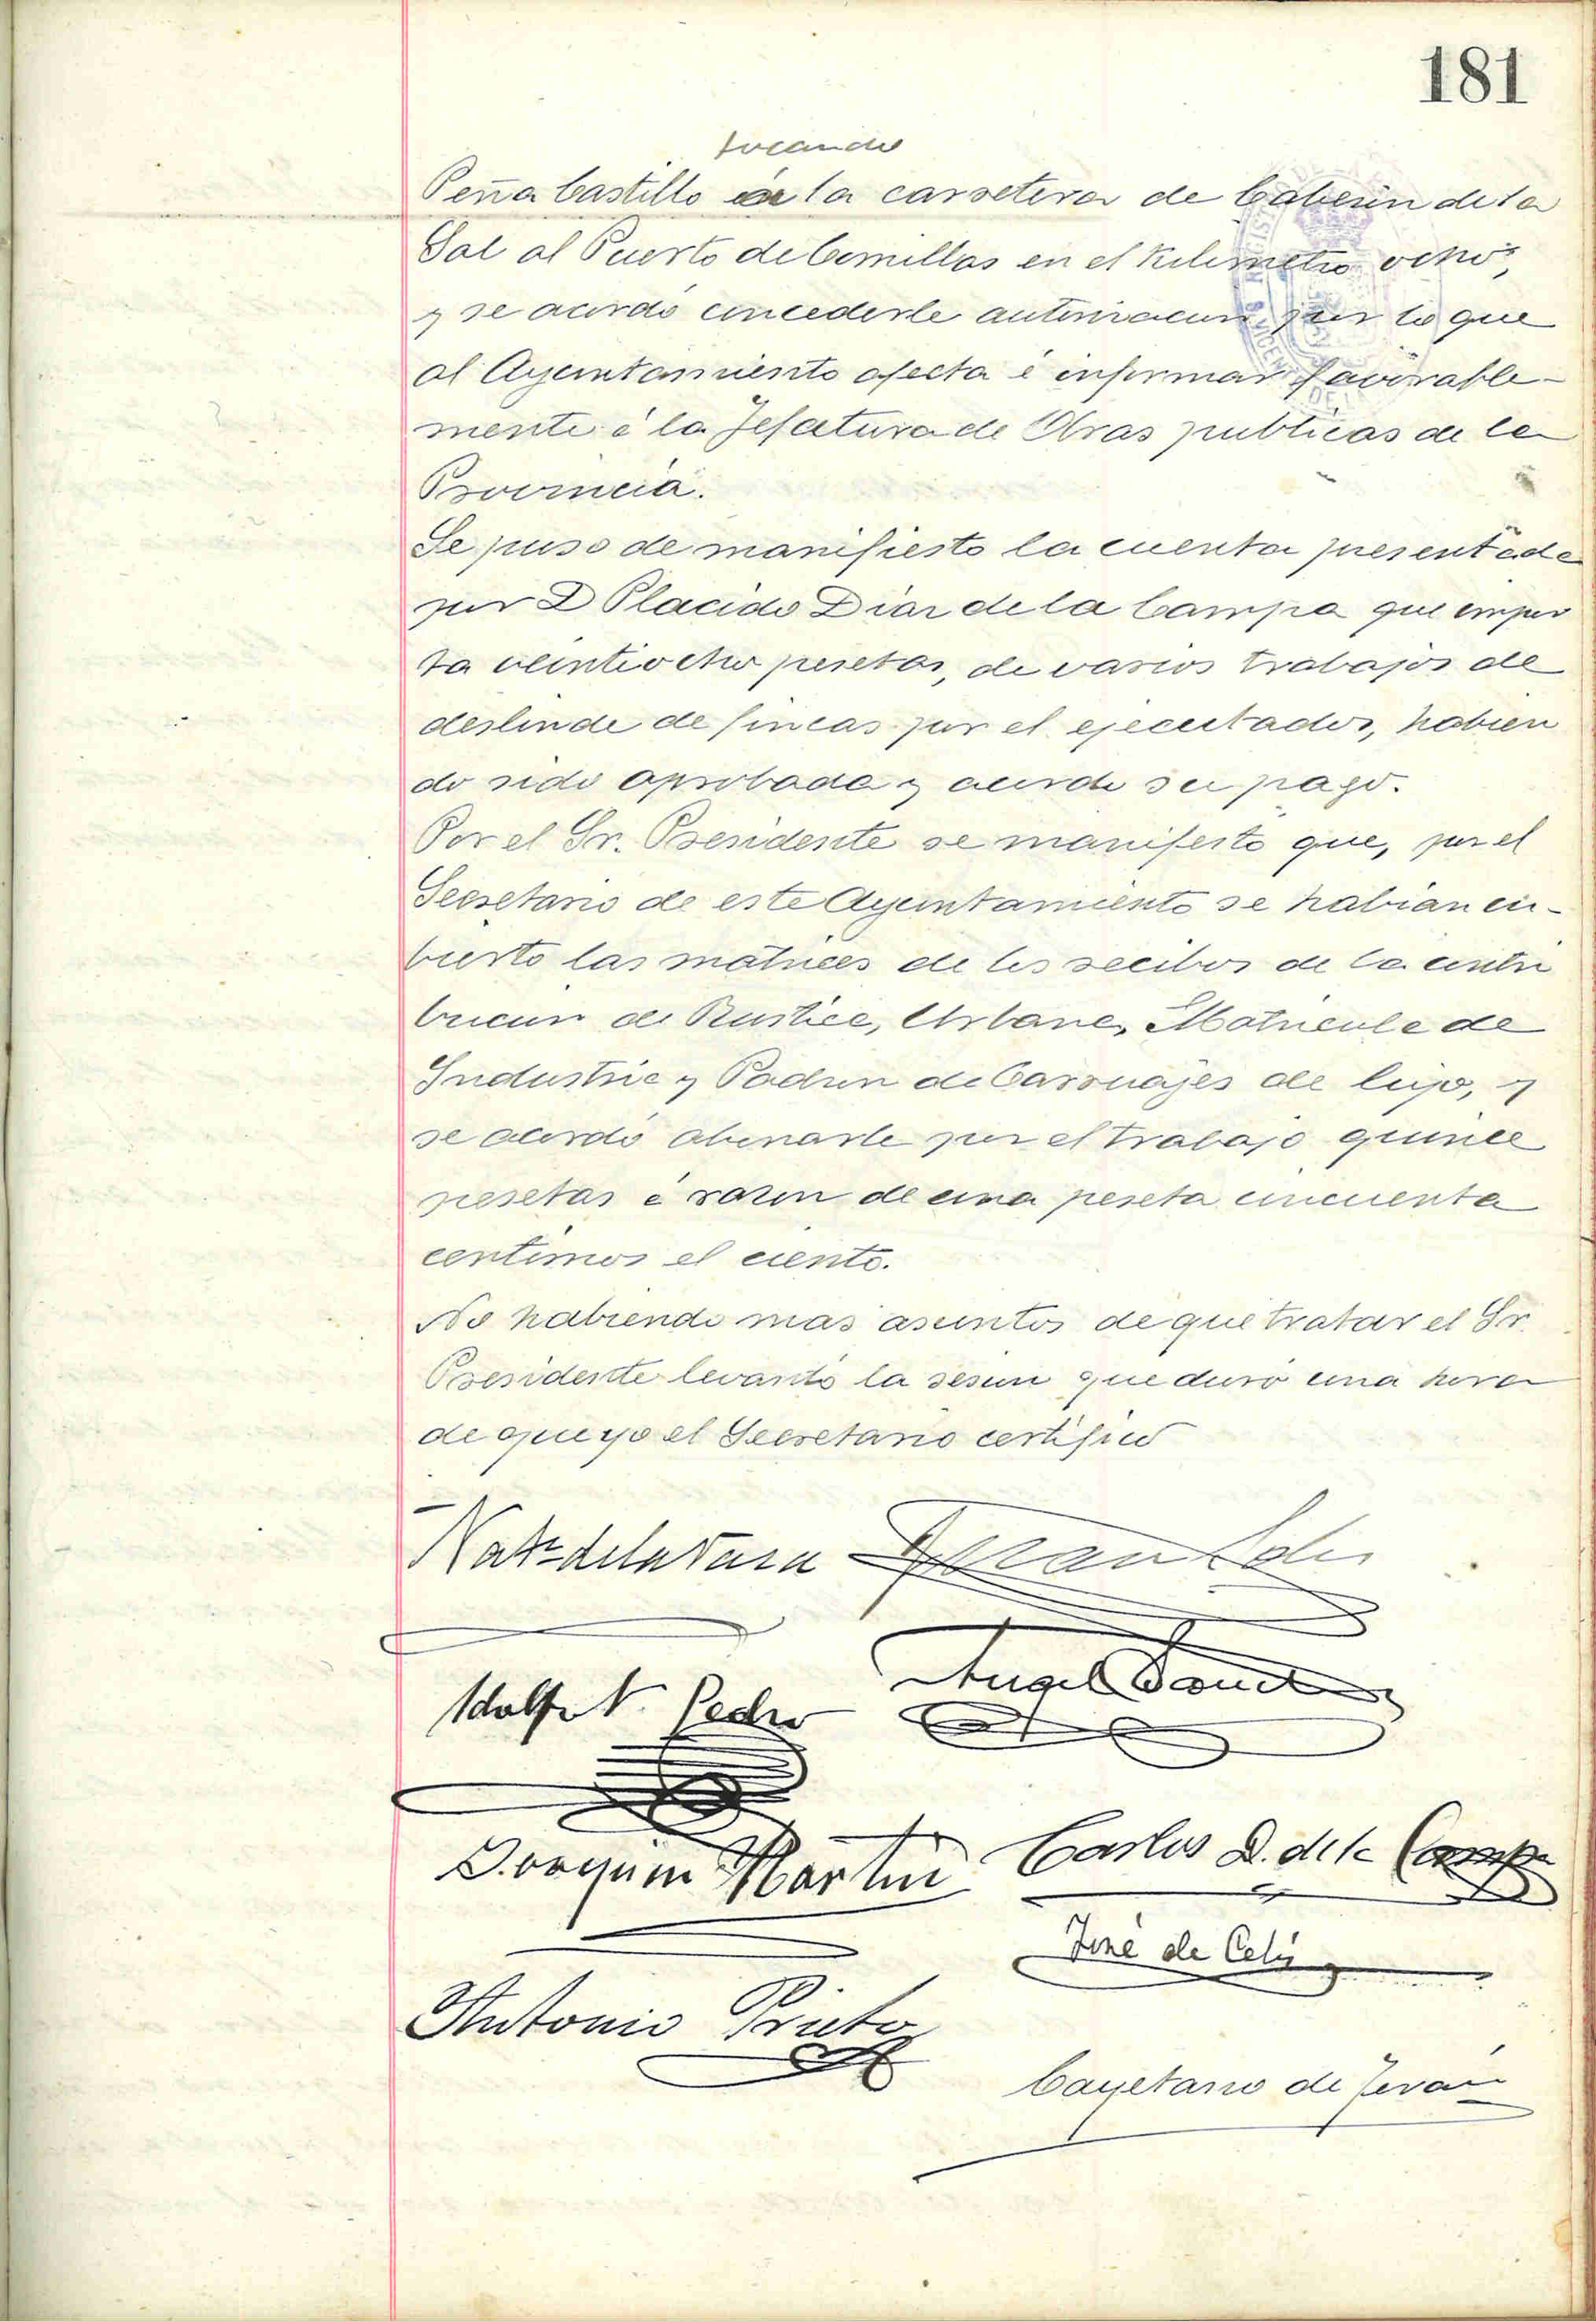 181
tocando
Peña Castillo á la carretera de Cabezon de la
Sal al Puerto de Comillas en el Kilometro ocho,
y se acordó concederle autorizacion por lo que
al Ayuntamiento afecta é informar favorable-
mente á la Jefatura de Obras publicas de la
Provincia.
Se puso de manifiesto la cuenta presentada
por D Placido Diaz de la Campa que impor
ta veintiocho pesetas, de varios trabajos de
deslinde de fincas por el ejecutados, habien
do sido aprobada y acordó su pago.
Por el Sr. Presidente se manifesto que, por el
Secretario de este Ayuntamiento se habian cu-
bierto las matrices de los recibos de la contri
bucion de Rustica, Urbana, Matricula de
Industria y Padron de Carruajes de lujo, y
se acordó abonarle por el trabajo quince
pesetas á razon de una peseta cincuenta
centimos el ciento.
No habiendo mas asuntos de que tratar el Sr.
Presidente levantó la sesion que duró una hora
de que yo el Secretario certifico
Adolfo V. Pedro
Angel
Joaquin Martin
Carlos D. de la Campa
José de Celis
Antonio Prieto
Cayetano de Teran